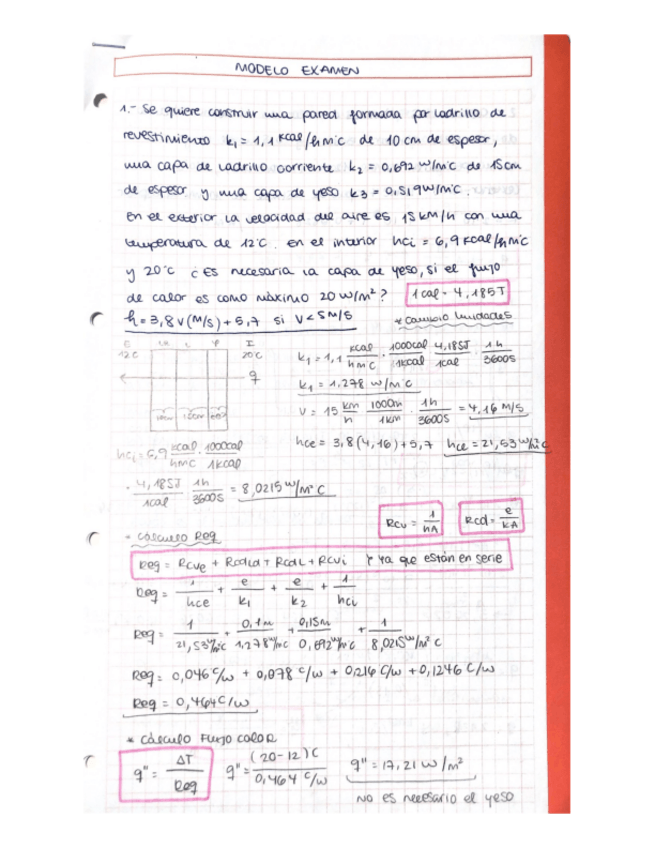 MODELO EXAMEN
1.- Se quiere construir una pared formada por ladrillo de
revestimiento k₁ = 1,1 Kcal/hm°C de 10 cm de espesor,
una capa de ladrillo corriente k₂ = 0,692 W/m°C de 15cm
de espesor y una capa de yeso k3 = 0,519W/m°C.
En el exterior la velocidad del aire es 15 km/h con una
temperatura de 12°C. en el interior hci = 6,9 Kcal/hm°C
y 20°C ¿Es necesaria la capa de yeso, si el flujo
de calor es como máximo 20 W/m²? 1 cal = 4,185J
h = 3,8 v (M/S) + 5,7 si V < 5 M/S
* cambio unidades
E I
12°C 20°C
q
10cm 15cm
k₁ = 1,1 Kcal/hm°C · 1000cal/1kcal · 4,185J/1cal · 1h/3600S
k₁ = 1,278 W/m°C
V = 15 km/h · 1000m/1km · 1h/3600S = 4,16 M/S
hce = 3,8(4,16) + 5,7 hce = 21,53 W/m²°C
hci = 6,9 Kcal/hm°C · 1000cal/1Kcal
· 4,185J/1cal · 1h/3600S = 8,0215 W/m²°C
Rcv = 1/hA Rcd = e/kA
* cálculo Req
Req = Rcve + Rcdld + RcdL + Rcvi ya que están en serie
Req = 1/hce + e/k₁ + e/k₂ + 1/hci
Req = 1/21,53 W/m²°C + 0,1m/1,278 W/m°C + 0,15m/0,692 W/m°C + 1/8,0215 W/m²°C
Req = 0,046 °C/W + 0,078 °C/W + 0,216 °C/W + 0,1246 °C/W
Req = 0,464 °C/W
* Cálculo Flujo calor
q" = ΔT/Req q" = (20-12)°C/0,464 °C/W q" = 17,21 W/m²
NO es necesario el yeso